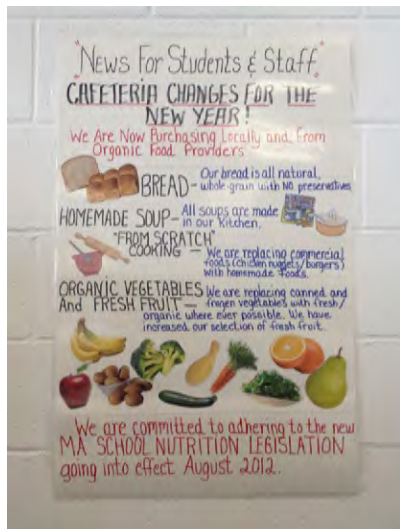 "News For Students & Staff"
CAFETERIA CHANGES FOR THE
NEW YEAR!
We Are Now Purchasing Locally and From
Organic Food Providers
BREAD - Our bread is all natural,
whole grain with NO preservatives
HOMEMADE SOUP - All soups are made
in our Kitchen.
"FROM SCRATCH"
COOKING - We are replacing commercial
foods (chicken nuggets/burgers)
with homemade foods.
ORGANIC VEGETABLES
And FRESH FRUIT - We are replacing canned and
frozen vegetables with fresh/
organic where ever possible. We have
increased our selection of fresh fruit.
We are committed to adhering to the new
MA SCHOOL NUTRITION LEGISLATION
going into effect August 2012.